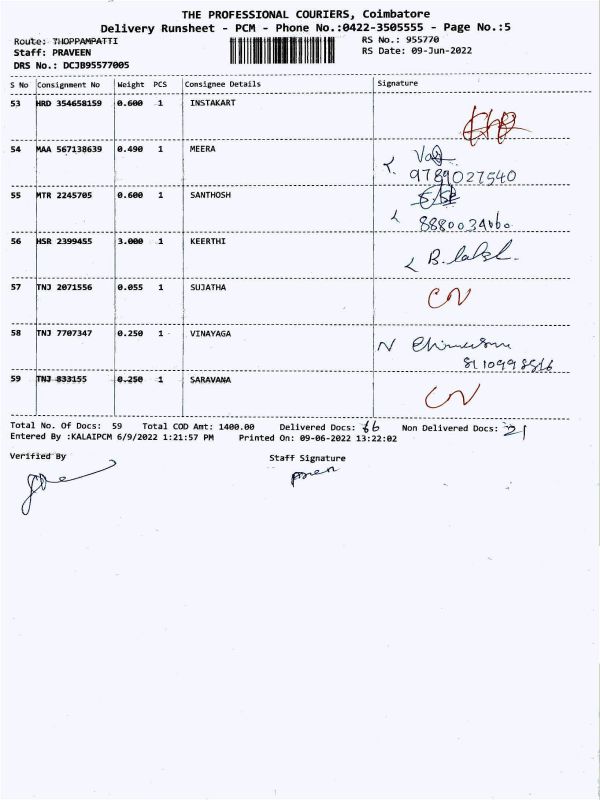 THE PROFESSIONAL COURIERS, Coimbatore
Delivery Runsheet - PCM - Phone No.:0422-3505555 - Page No.:5
Route: THOPPAMPATTI
Staff: PRAVEEN
DRS No.: DCJB95577005
RS No.: 955770
RS Date: 09-Jun-2022
S No Consignment No Weight PCS Consignee Details Signature
53 HRD 354658159 0.600 1 INSTAKART
54 MAA 567138639 0.490 1 MEERA
9789027540
55 MTR 2245705 0.600 1 SANTHOSH
56 HSR 2399455 3.000 1 KEERTHI
B. laksl.
57 TNJ 2071556 0.055 1 SUJATHA
CN
58 TNJ 7707347 0.250 1 VINAYAGA
59 TNJ 833155 0.250 1 SARAVANA
CN
Total No. Of Docs: 59 Total COD Amt: 1400.00 Delivered Docs: Non Delivered Docs: 21
Entered By :KALAIPCM 6/9/2022 1:21:57 PM Printed On: 09-06-2022 13:22:02
Verified By Staff Signature